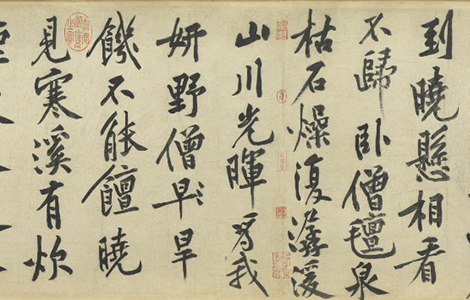 到曉懸相看
不歸臥僧氊泉
枯石燥復潺湲
山川光暉為我
妍野僧早旱
饑不能饘曉
見寒溪有炊